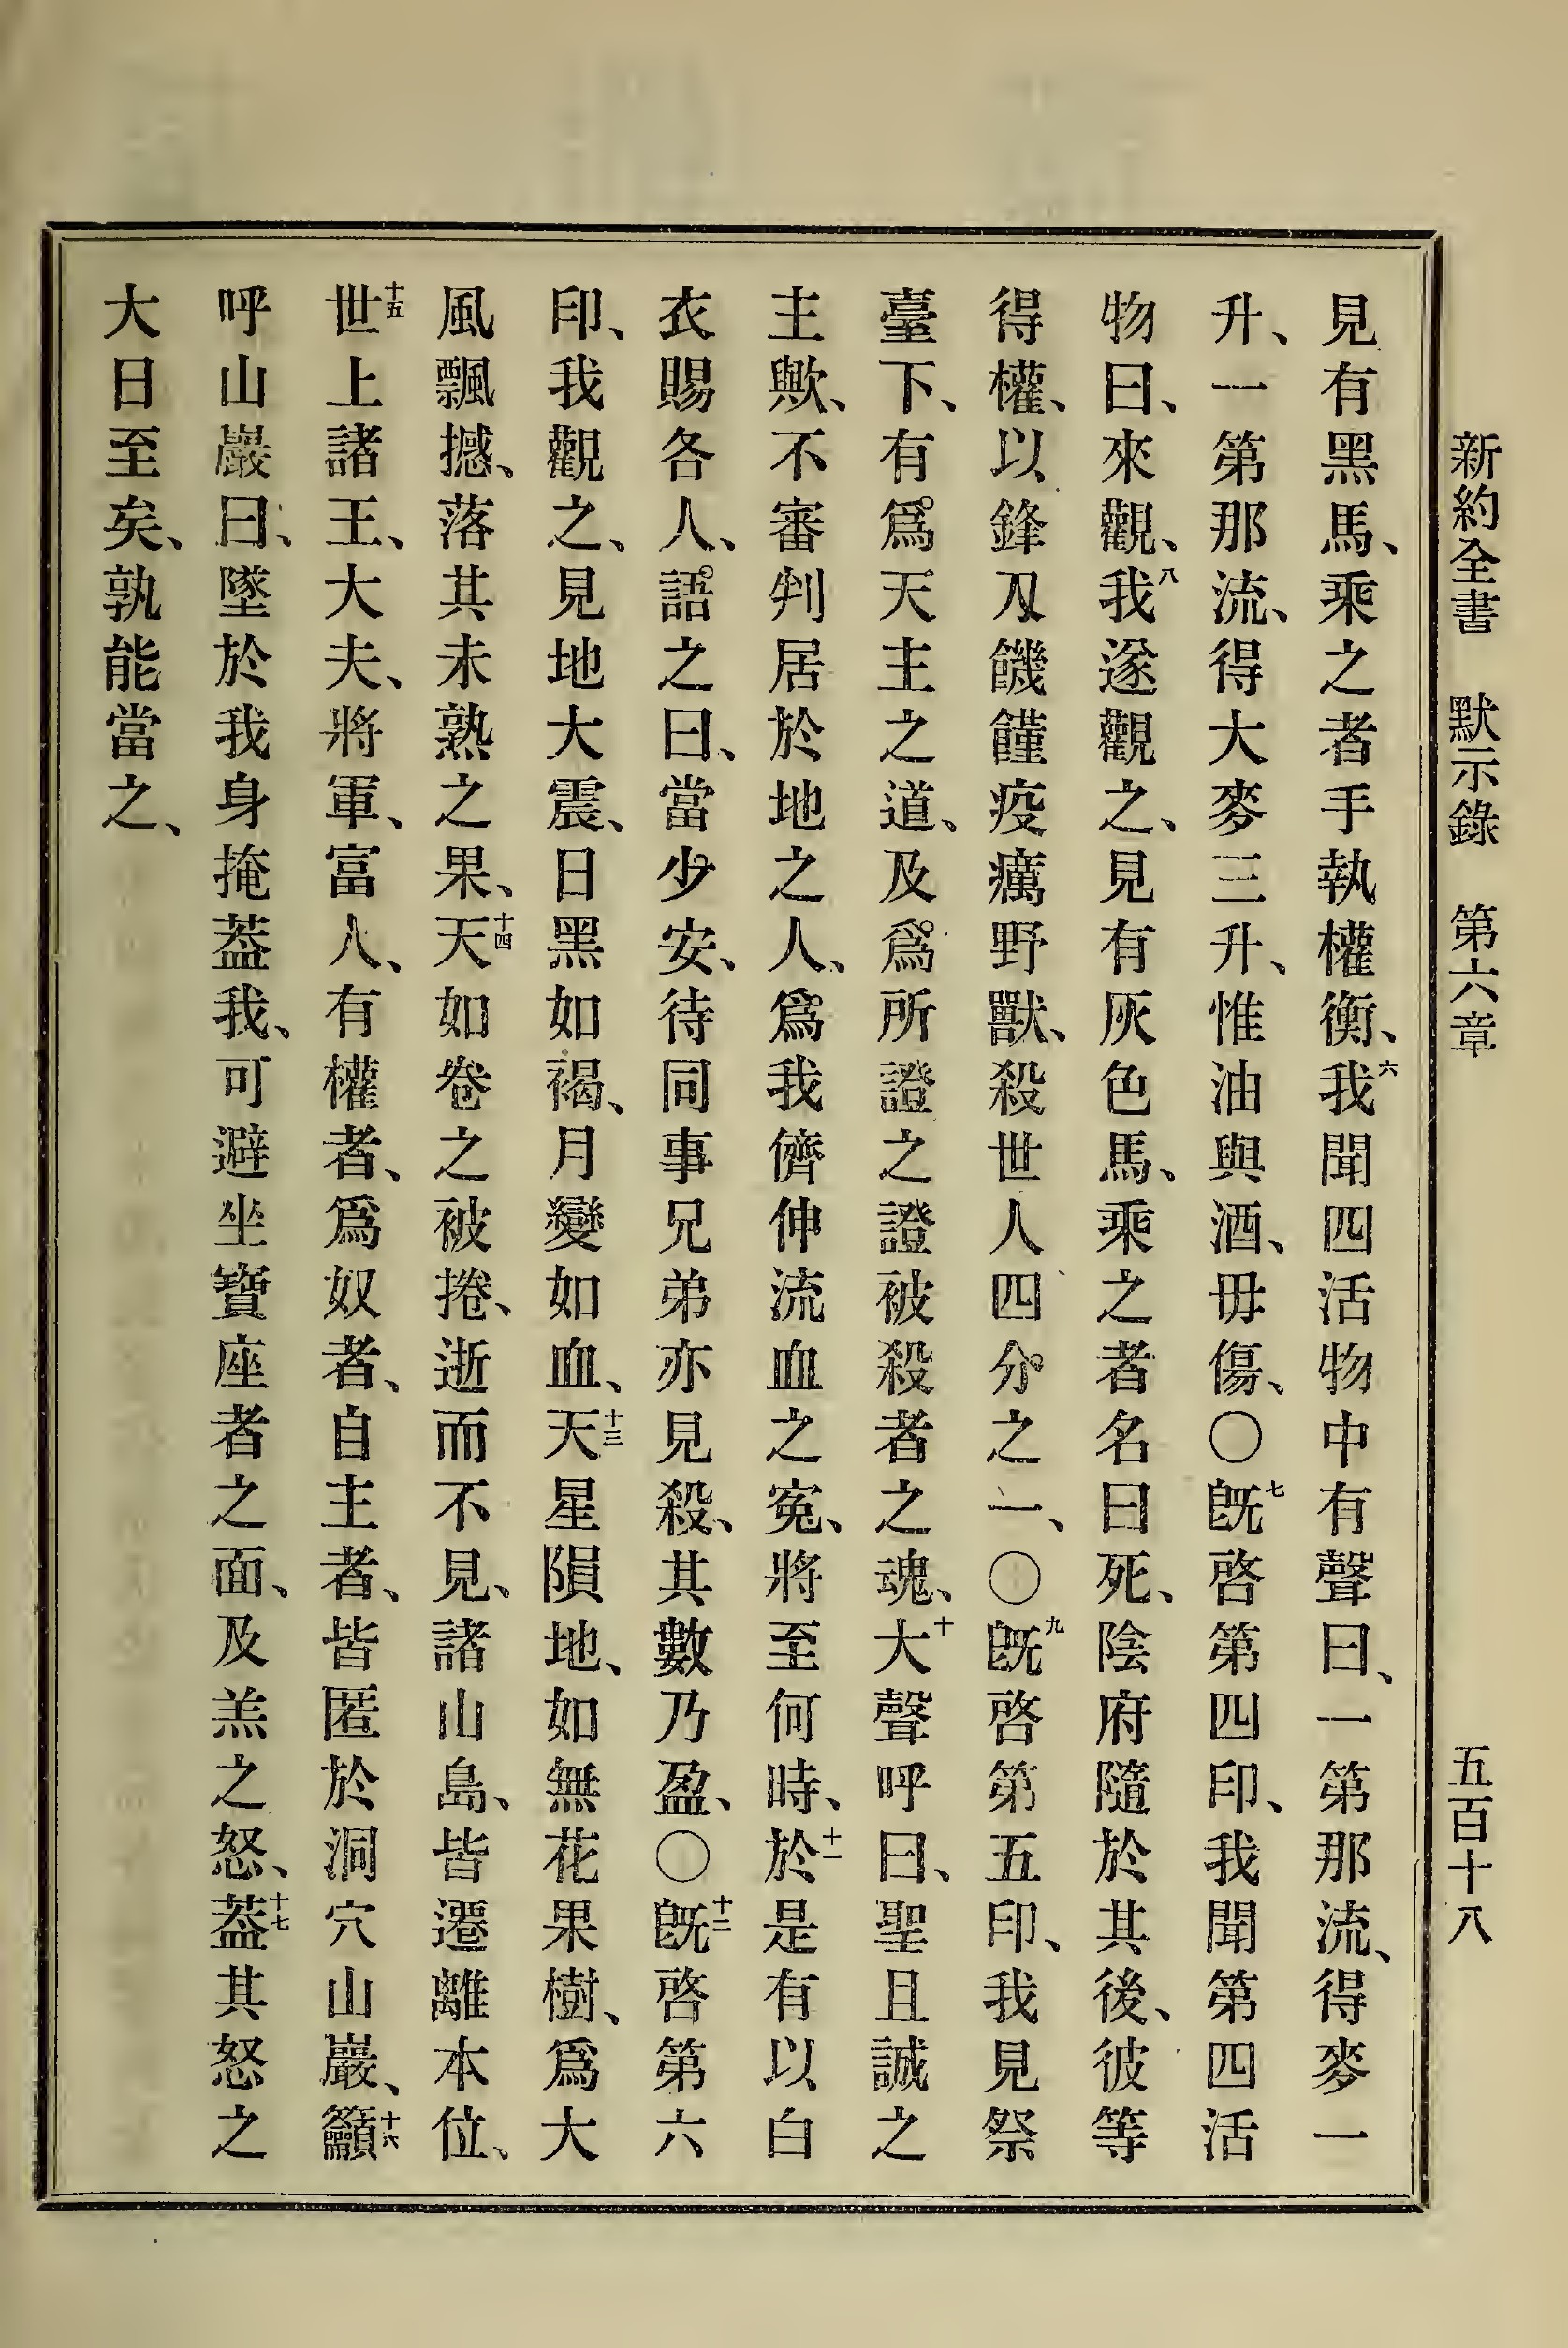 新約全書 默示錄 第六章 五百十八
見有黑馬、乘之者手執權衡、六我聞四活物中有聲曰、一第那流、得麥一
升、一第那流、得大麥三升、惟油與酒、毋傷、〇七旣啓第四印、我聞第四活
物曰、來觀、八我遂觀之、見有灰色馬、乘之者名曰死、陰府隨於其後、彼等
得權、以鋒刃饑饉疫癘野獸、殺世人四分之一、〇九旣啓第五印、我見祭
臺下、有爲天主之道、及爲所證之證被殺者之魂、十大聲呼曰、聖且誠之
主歟、不審判居於地之人、爲我儕伸流血之寃、將至何時、十一於是有以白
衣賜各人、語之曰、當少安、待同事兄弟亦見殺、其數乃盈、〇十二旣啓第六
印、我觀之、見地大震、日黑如褐、月變如血、十三天星隕地、如無花果樹、爲大
風飄撼、落其未熟之果、十四天如卷之被捲、逝而不見、諸山島、皆遷離本位、
十五世上諸王、大夫、將軍、富人、有權者、爲奴者、自主者、皆匿於洞穴山巖、十六籲
呼山巖曰、墜於我身掩葢我、可避坐寶座者之面、及羔之怒、十七葢其怒之
大日至矣、孰能當之、